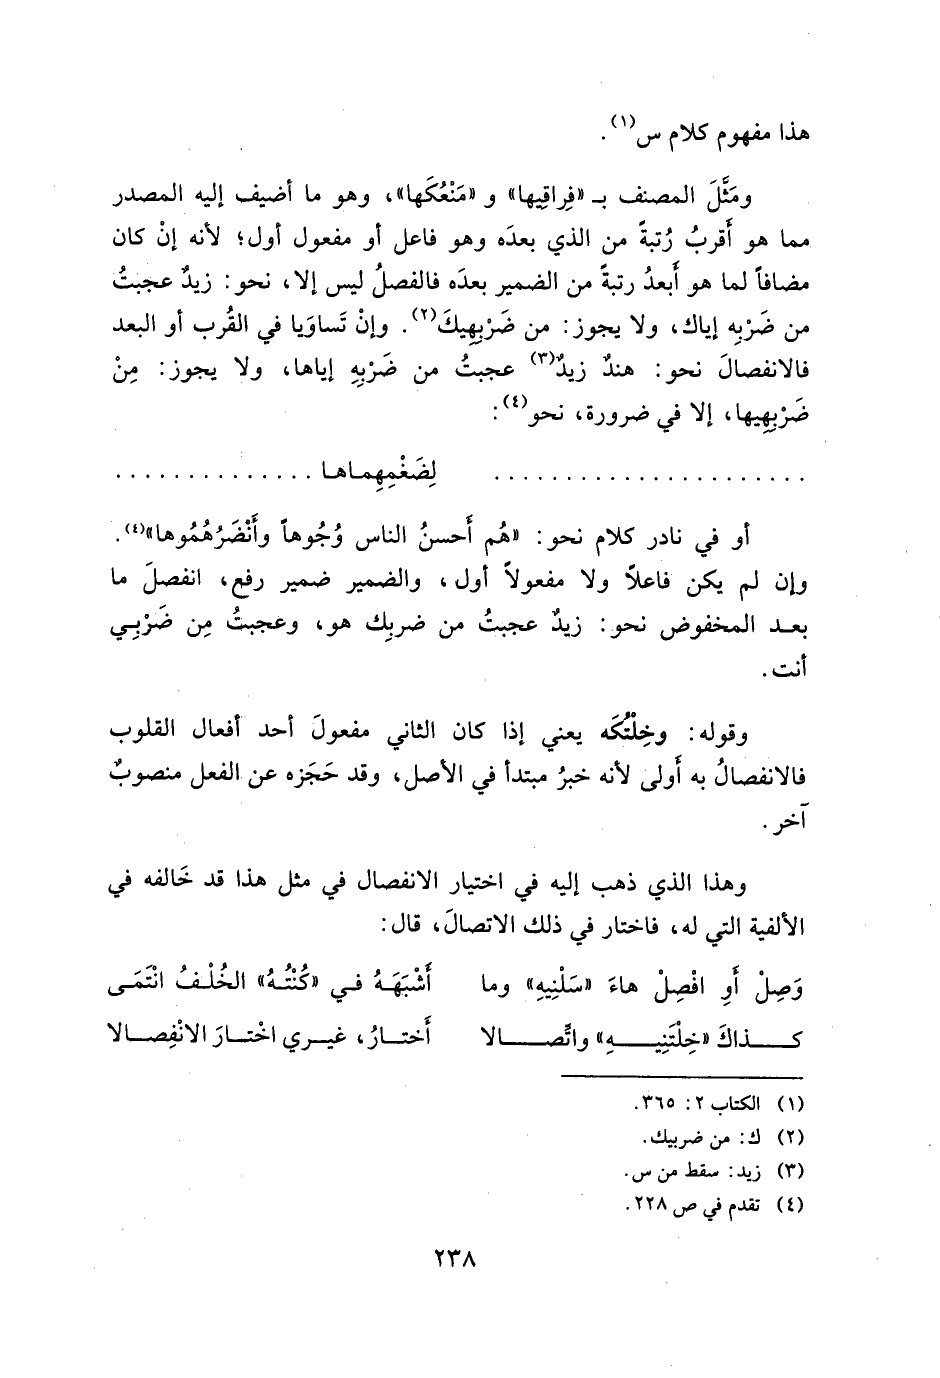 هذا مفهوم كلام س(١).
ومَثَّلَ المصنف بـ «فِراقِيها» و «مَنْعُكَها»، وهو ما أضيف إليه المصدر
مما هو أَقربُ رُتبةً من الذي بعدَه وهو فاعل أو مفعول أول؛ لأنه إنْ كان
مضافاً لما هو أَبعدُ رتبةً من الضمير بعدَه فالفصلُ ليس إلا، نحو: زيدٌ عجبتُ
من ضَرْبِه إياك، ولا يجوز: من ضَرْبِهِيكَ(٢). وإنْ تَساوَيا في القُرب أو البعد
فالانفصالَ نحو: هندٌ زيدٌ(٣) عجبتُ من ضَرْبِهِ إياها، ولا يجوز: مِنْ
ضَرْبِهِيها، إلا في ضرورة، نحو(٤):
...................... لِضَغْمِهِماها ..............
أو في نادر كلام نحو: «هُم أَحسنُ الناس وُجُوهاً وأَنْضَرُهُمُوها»(٤).
وإن لم يكن فاعلاً ولا مفعولاً أول، والضمير ضمير رفع، انفصلَ ما
بعد المخفوض نحو: زيدٌ عجبتُ من ضربِك هو، وعجبتُ مِن ضَرْبِي
أنت.
وقوله: وخِلْتُكَه يعني إذا كان الثاني مفعولَ أحد أفعال القلوب
فالانفصالُ به أَولى لأنه خبرُ مبتدأ في الأصل، وقد حَجَزه عن الفعل منصوبٌ
آخر.
وهذا الذي ذهب إليه في اختيار الانفصال في مثل هذا قد خَالفه في
الألفية التي له، فاختار في ذلك الاتصالَ، قال:
وَصِلْ أَوِ افْصِلْ هاءَ «سَلْنِيهِ» وما أَشْبَهَهُ في «كُنْتُهُ» الخُلْفُ انْتَمَى
كذاكَ «خِلْتَنِيهِ» واتِّصالا أَختارُ، غيري اخْتارَ الانْفِصالا
(١) الكتاب ٢: ٣٦٥.
(٢) ك: من ضربيك.
(٣) زيد: سقط من س.
(٤) تقدم في ص ٢٢٨.
٢٣٨